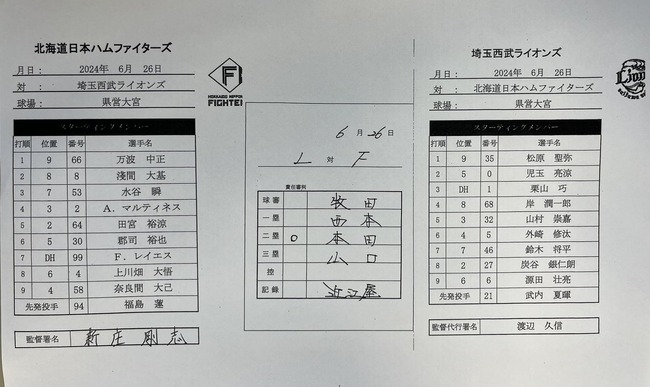 北海道日本ハムファイターズ
月日： 2024年 6月 26日
対： 埼玉西武ライオンズ
球場： 県営大宮
F
HOKKAIDO NIPPON-HAM
FIGHTERS
スターティングメンバー
打順 位置 番号 選手名
1 9 66 万波 中正
2 8 8 淺間 大基
3 7 53 水谷 瞬
4 3 2 A．マルティネス
5 2 64 田宮 裕涼
6 5 30 郡司 裕也
7 DH 99 F．レイエス
8 6 4 上川畑 大悟
9 4 58 奈良間 大己
先発投手 94 福島 蓮
監督署名 新庄 剛志
6月26日
L 対 F
責任審判
球審 牧田
一塁 西本
二塁 ○ 本田
三塁 山口
控
記録 近江屋
埼玉西武ライオンズ
月日： 2024年 6月 26日
対： 北海道日本ハムファイターズ
球場： 県営大宮
Lions
スターティングメンバー
打順 位置 番号 選手名
1 9 35 松原 聖弥
2 5 0 児玉 亮涼
3 DH 1 栗山 巧
4 8 68 岸 潤一郎
5 3 32 山村 崇嘉
6 4 5 外崎 修汰
7 7 46 鈴木 将平
8 2 27 炭谷 銀仁朗
9 6 6 源田 壮亮
先発投手 21 武内 夏暉
監督代行署名 渡辺 久信